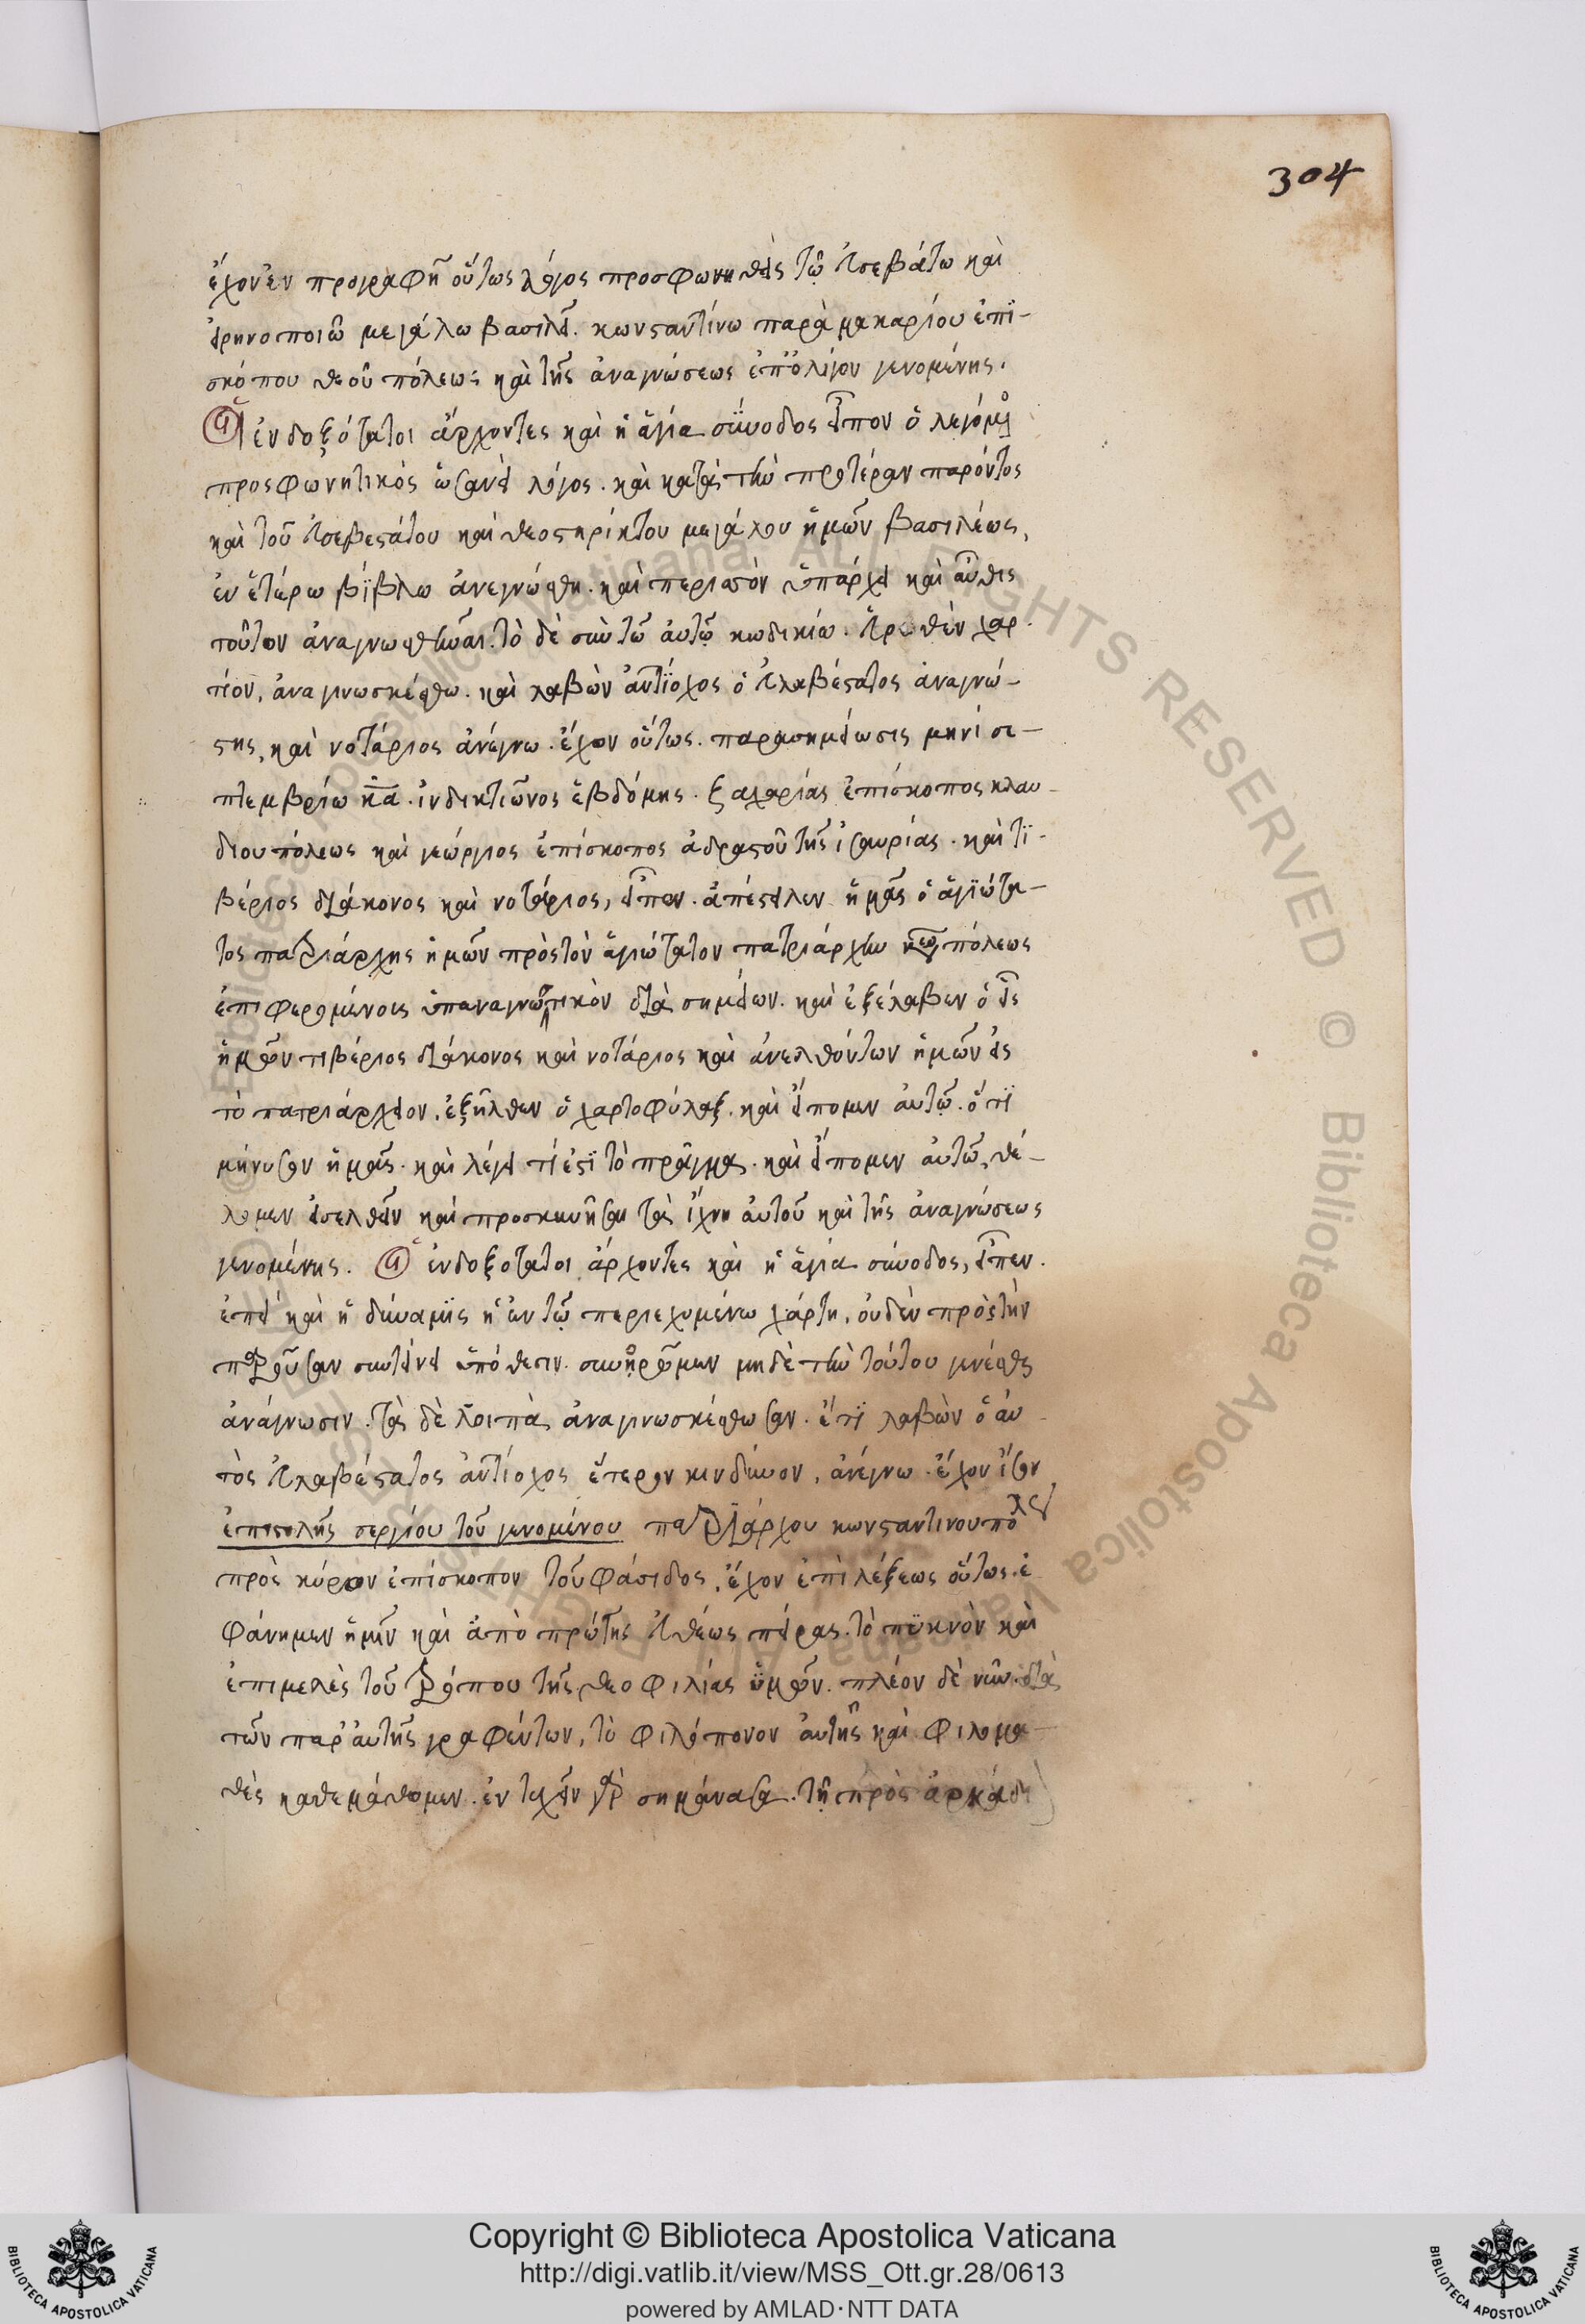 304
ἔχον ἐν προγραφῇ οὕτως λόγος προσφωνηθεὶς τῷ εὐσεβάτω καὶ
εἰρηνοποιῶ μεγάλω βασιλεῖ. κωνσταντίνω παρὰ μακαρίου ἐπι-
σκόπου θεοῦ πόλεως καὶ τῆς ἀναγνώσεως ἐπ' ὀλίγον γενομένης.
οἱ ἐνδοξότατοι ἄρχοντες καὶ ἡ ἁγία σύνοδος εἶπον ὁ λεγόμενος
προσφωνητικὸς ὡσανεὶ λόγος. καὶ κατὰ τὴν προτέραν παρόντος
καὶ τοῦ εὐσεβεστάτου καὶ θεοστηρίκτου μεγάλου ἡμῶν βασιλέως,
ἐν ἑτέρω βίβλω ἀνεγνώσθη. καὶ περιττὸν ὑπάρχει καὶ αὖθις
τοῦτον ἀναγνωσθῆναι. τὸ δὲ σὺν τῶ αὐτῷ κωδικίω. εὑρεθὲν χαρ-
τίον, ἀναγινωσκέσθω. καὶ λαβὼν ἀντίοχος ὁ εὐλαβέστατος ἀναγνώ-
στης, καὶ νοτάριος ἀνέγνω. ἔχον οὕτως. παρασημείωσις μηνὶ σε-
πτεμβρίω κα. ἰνδικτιῶνος ἑβδόμης. ζαχαρίας ἐπίσκοπος κλαυ-
διουπόλεως καὶ γεώργιος ἐπίσκοπος ἀδρασοῦ τῆς ἰσαυρίας. καὶ τι-
βέριος διάκονος καὶ νοτάριος, εἶπον. ἀπέστειλεν ἡμᾶς ὁ ἁγιώτα-
τος πατριάρχης ἡμῶν πρὸς τὸν ἁγιώτατον πατριάρχην πόλεως
ἐπιφερομένοις ὑπαναγνωστικὸν διὰ σημείων. καὶ ἐξέλαβεν ὁ εἷς
ἡμῶν τιβέριος διάκονος καὶ νοτάριος καὶ ἀνελθόντων ἡμῶν εἰς
τὸ πατριάρχειον. ἐξῆλθεν ὁ χαρτοφύλαξ. καὶ εἴπομεν αὐτῷ. ὅτι
μήνυσον ἡμᾶς. καὶ λέγει τί ἐστὶ τὸ πρᾶγμα. καὶ εἴπομεν αὐτῶ, θέ-
λομεν εἰσελθεῖν καὶ προσκυνῆσαι τὰ ἴχνη αὐτοῦ καὶ τῆς ἀναγνώσεως
γενομένης. οἱ ἐνδοξότατοι ἄρχοντες καὶ ἡ ἁγία σύνοδος, εἶπεν.
ἐπεὶ καὶ ἡ δύναμις ἡ ἐν τῷ περιεχομένω χάρτη, οὐδὲν πρὸς τὴν
παροῦσαν συντείνει ὑπόθεσιν. συνορῶμεν μηδὲ τὴν τούτου γενέσθαι
ἀνάγνωσιν. τὰ δὲ λοιπὰ ἀναγινωσκέσθωσαν. ἔτι λαβὼν ὁ αὐ-
τὸς εὐλαβέστατος ἀντίοχος ἕτερον κινδύνον, ἀνέγνω. ἔχον ἴσον
ἐπιστολῆς σεργίου τοῦ γενομένου πατριάρχου κωνσταντινουπόλεως
πρὸς κύρον ἐπίσκοπον τοῦ φάσιδος, ἔχον ἐπὶ λέξεως οὕτως. ἐ-
φάνημεν ἡμῖν καὶ ἀπὸ πρώτης εὐθέως πείρας. τὸ πυκνὸν καὶ
ἐπιμελὲς τοῦ τρόπου τῆς θεοφιλίας ὑμῶν. πλέον δὲ νῦν διὰ
τῶν παρ' αὐτῆς γραφέντων, τὸ φιλόπονον αὐτῆς καὶ φιλομα-
θὲς κατεμάθομεν. ἐντυχεῖν γὰρ σημάνασα. τῇ πρὸς ἀρκάδι
Copyright © Biblioteca Apostolica Vaticana
http://digi.vatlib.it/view/MSS_Ott.gr.28/0613
powered by AMLAD·NTT DATA